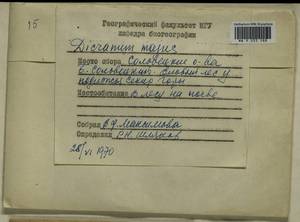 15
Географический факультет МГУ
кафедра биогеографии
Dicranum majus
Место сбора Соловецкие о-ва
о. Соловецкий. Еловый лес у
подножья Секир. горы
Местообитание В лесу на почве
Собрал В.Д. Максимова
Определил Р.Н. Шляков
28/VI 1970